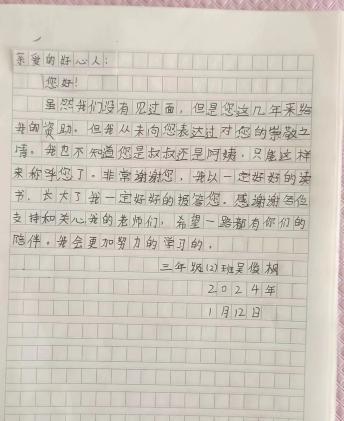 亲爱的好心人：
您好！
虽然我们没有见过面，但是您这几年来给
我的资助。但我从未向您表达过对您的崇敬之
情。我也不知道您是叔叔还是阿姨，只能这样
来称呼您了。非常谢谢您，我以一定好好的读
书，长大了我一定好好的报答您。感谢谢各位
支持和关心我的老师们，希望一路都有你们的
陪伴。我会更加努力的学习的。
三年级(2)班吴俊桐
2024年
1月12日